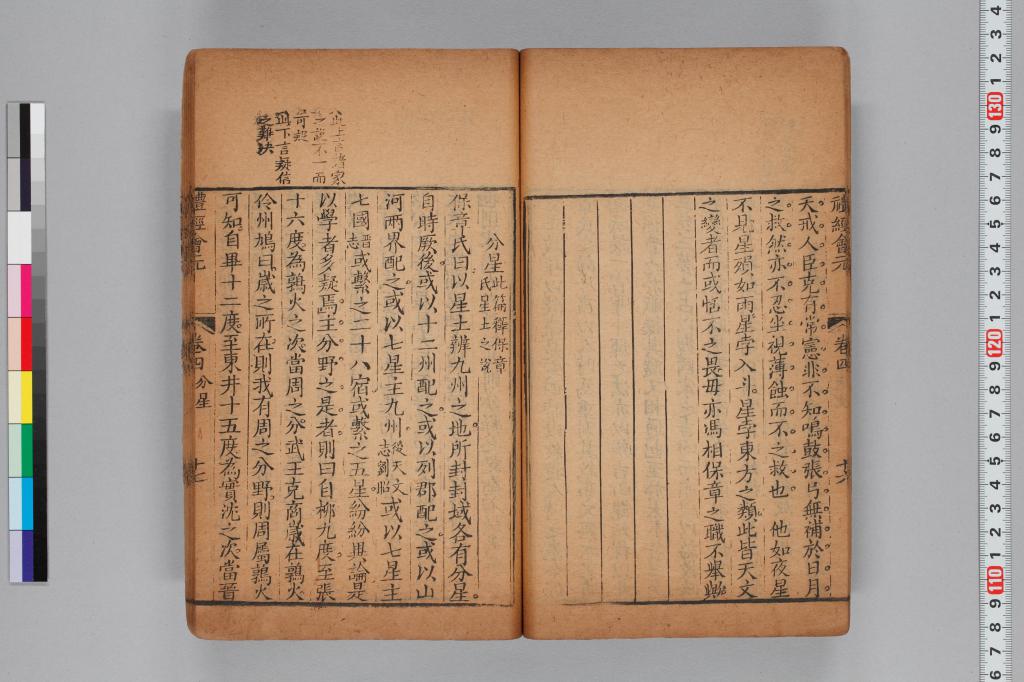 禮經會元
卷四
十六
天戒人臣克有常憲非不知鳴鼓張弓無補於日月
之救然亦不忍坐視薄蝕而不之救也 他如夜星
不見星隕如雨星孛入斗星孛東方之類此皆天文
之變者而或恬不之畏毋亦馮相保章之職不舉歟
分星此篇釋保章氏星土之說
保章氏曰以星土辨九州之地所封封域各有分星
自時厥後或以十二州配之或以列郡配之或以山
河兩界配之或以七星主九州後天文志劉昭或以七星主
七國晉志或繫之二十八宿或繫之五星紛紛異論是
以學者多疑焉主分野之是者則曰自柳九度至張
十六度為鶉火之次當周之分武王克商歲在鶉火
伶州鳩曰歲之所在則我有周之分野則周屬鶉火
可知自畢十二度至東井十五度為實沈之次當晉
之說不一而
可疑
此下言疑信
之難決
禮經會元
卷四 分星
十七
000 4 3 2 1 130 9 8 7 6 5 4 3 2 1 120 9 8 7 6 5 4 3 2 1 110 9 8 7 6